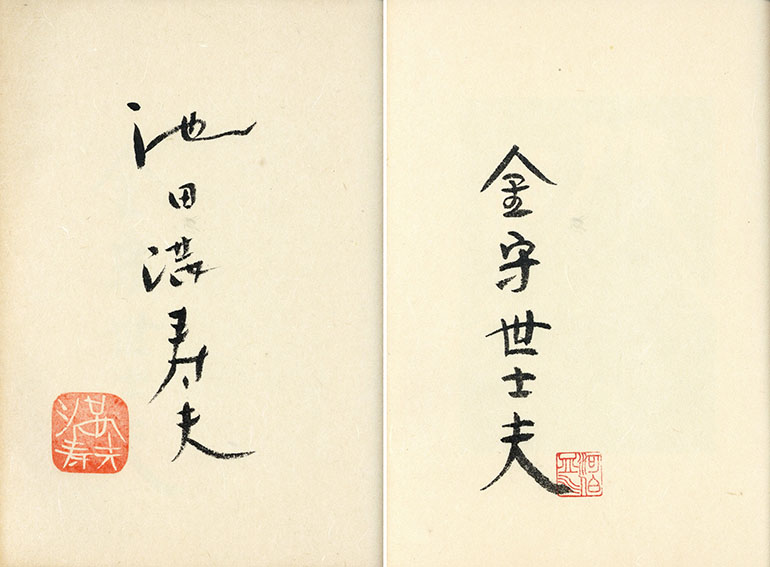 池田満寿夫
満寿夫
金守世士夫